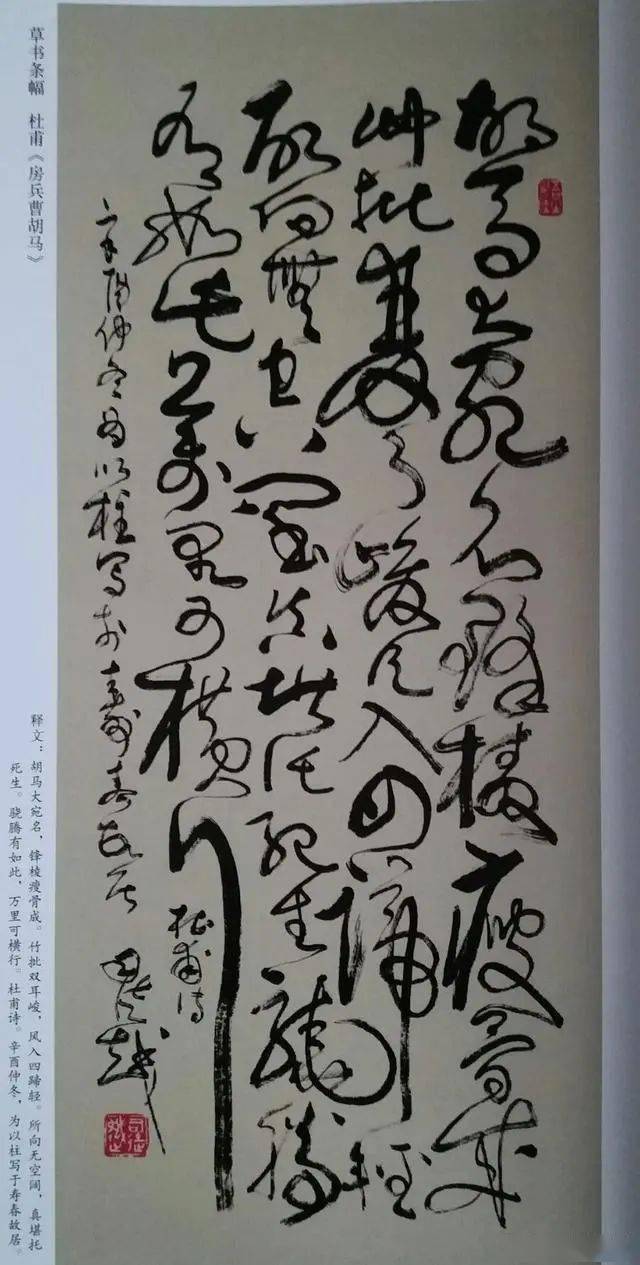 胡馬大宛名鋒棱瘦骨成
竹批雙耳峻風入四蹄輕
所向無空闊真堪托死生驍騰
有如此萬里可橫行
杜甫詩
辛酉仲冬為以柱寫於壽春故居
司徒越
草书条幅 杜甫《房兵曹胡马》
释文：胡马大宛名，锋棱瘦骨成。竹批双耳峻，风入四蹄轻。所向无空阔，真堪托
死生。骁腾有如此，万里可横行。杜甫诗。辛酉仲冬，为以柱写于寿春故居。